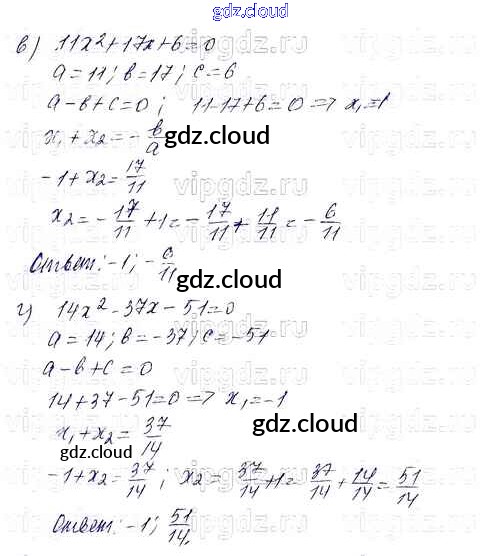 gdz.cloud
в) 11x²+17x+6=0
a=11; в=17; c=6
a-в+c=0; 11-17+6=0 => x₁=1
x₁+x₂=-в/a
gdz.cloud
-1+x₂=17/11
x₂=-17/11+1=-17/11+11/11=-6/11
Ответ: -1; -6/11
gdz.cloud
г) 14x²-37x-51=0
a=14; в=-37; c=-51
a-в+c=0
14+37-51=0 => x₁=-1
x₁+x₂=37/14
gdz.cloud
-1+x₂=37/14; x₂=37/14+1=37/14+14/14=51/14
Ответ: -1; 51/14.
gdz.cloud